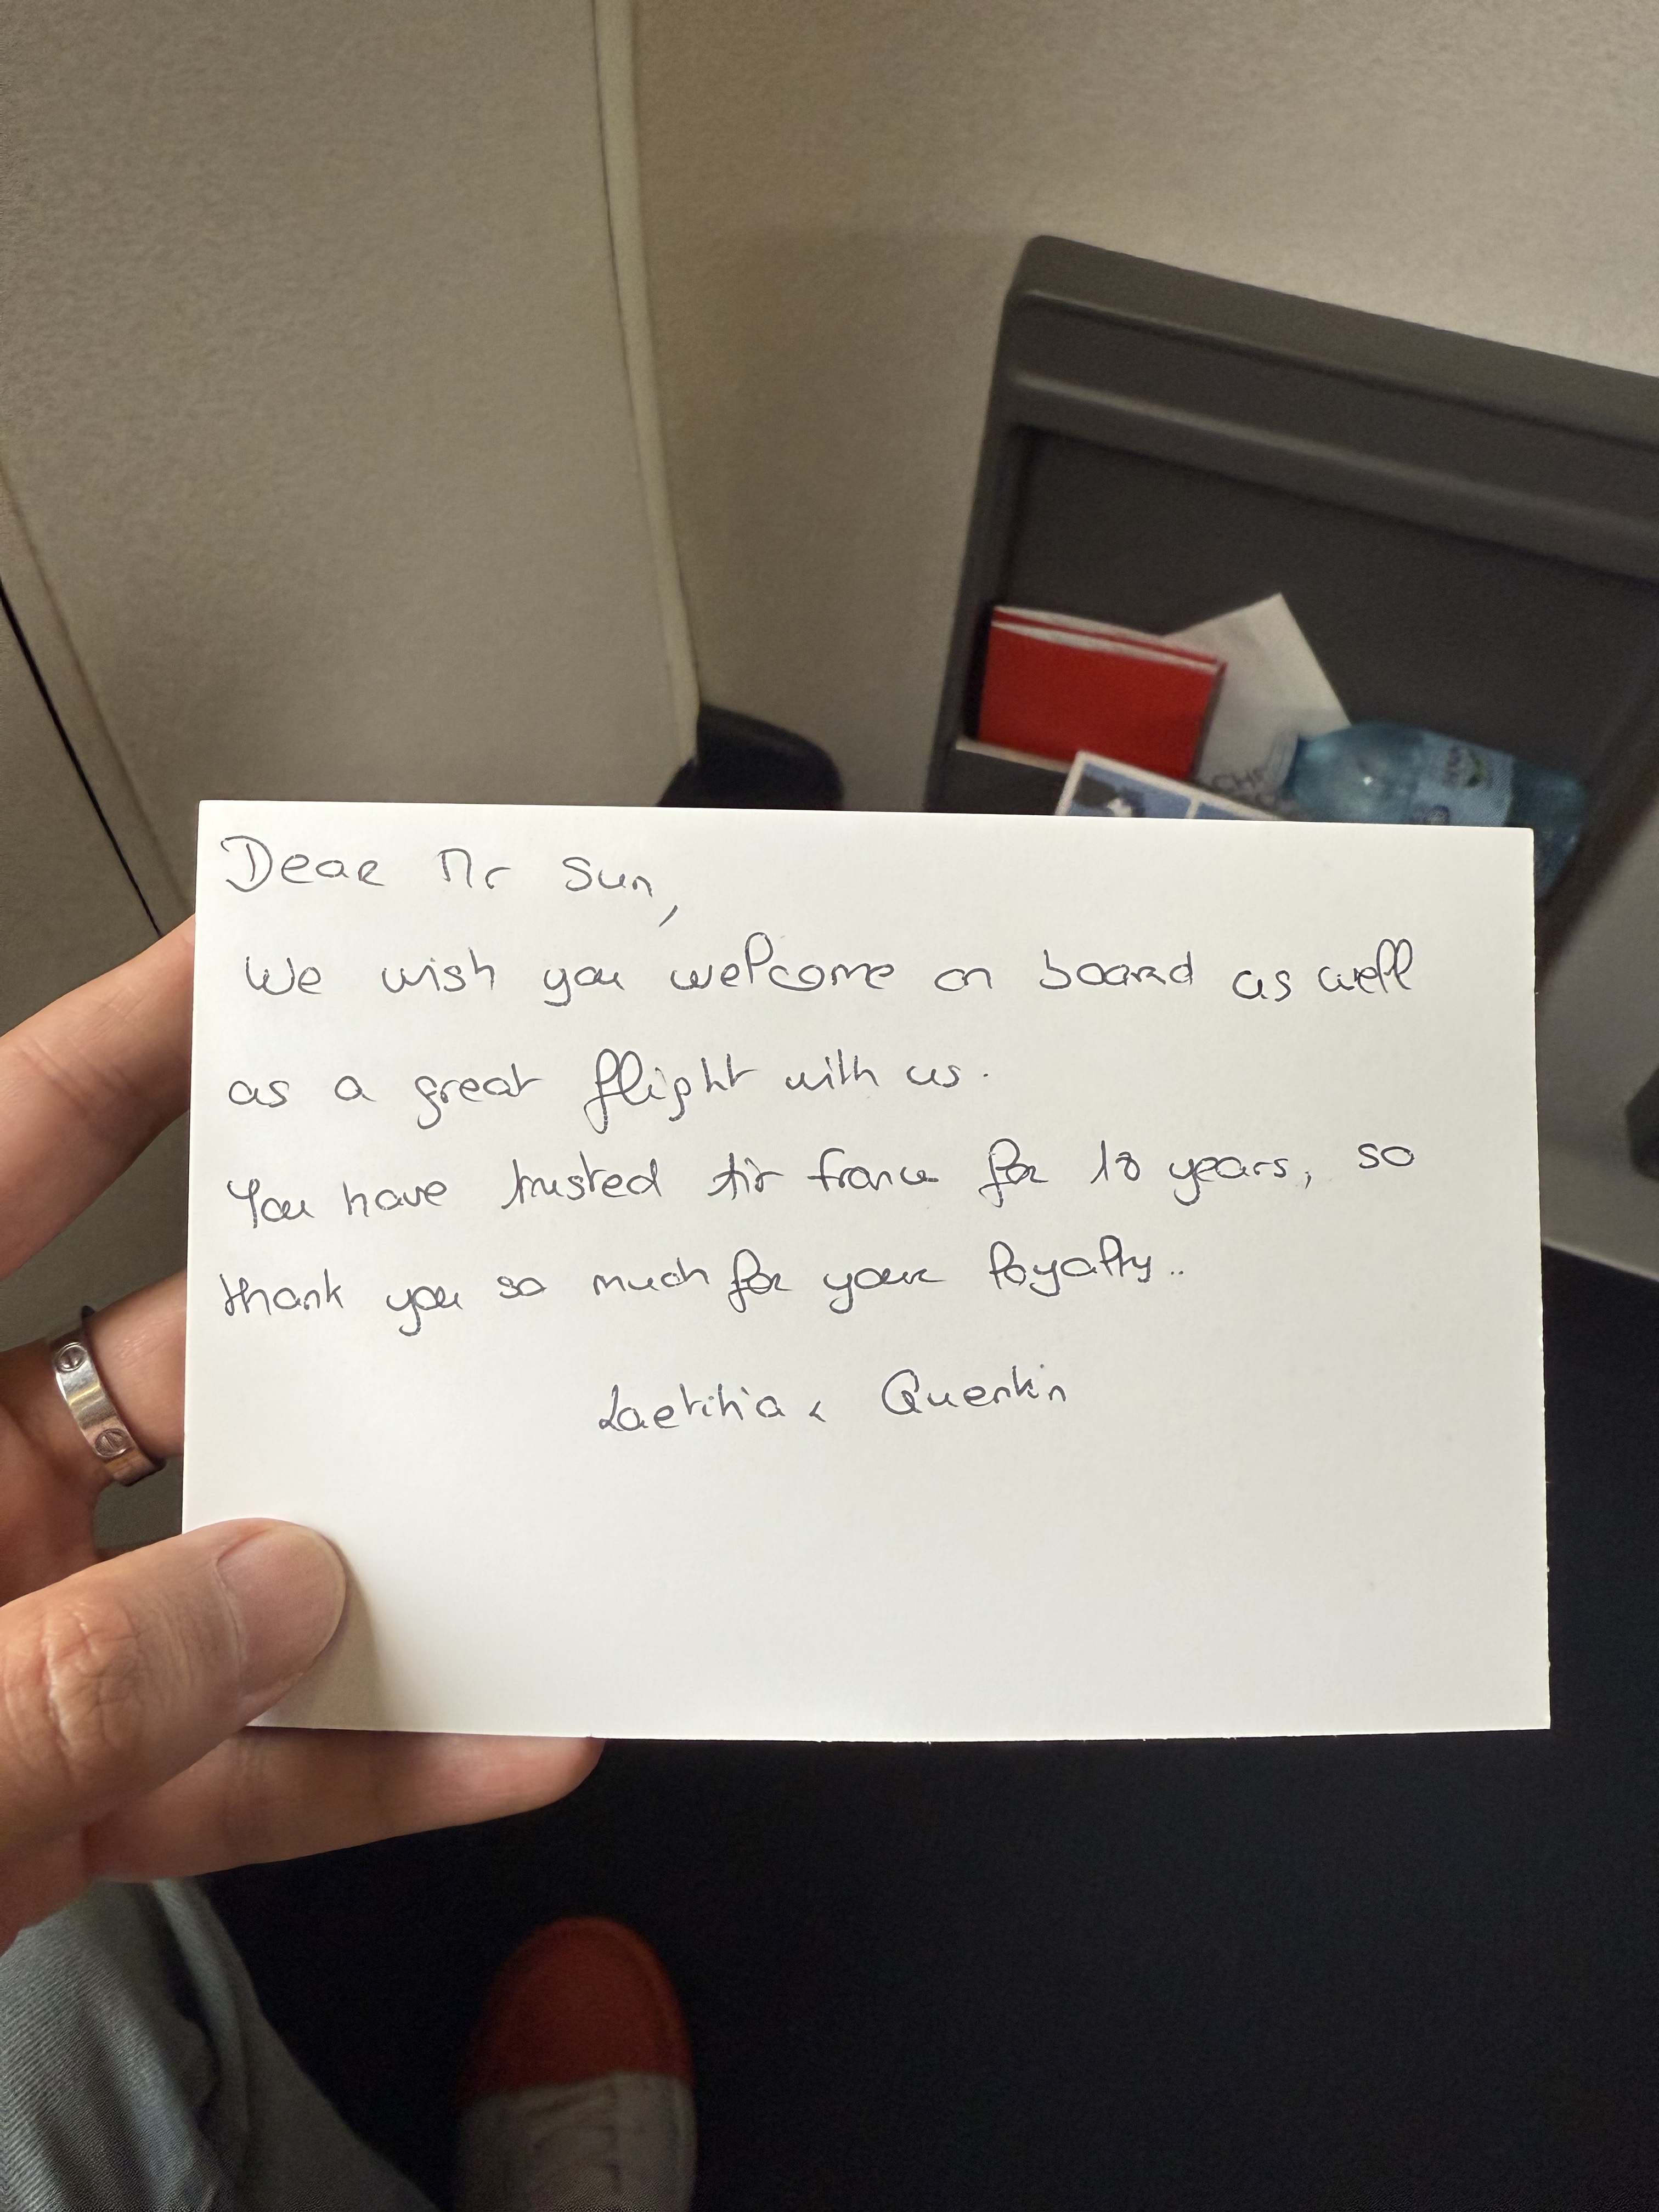 Dear Mr Sun,
We wish you welcome on board as well
as a great flight with us.
You have trusted Air france for 18 years, so
thank you so much for your loyalty..
Laetitia & Quentin